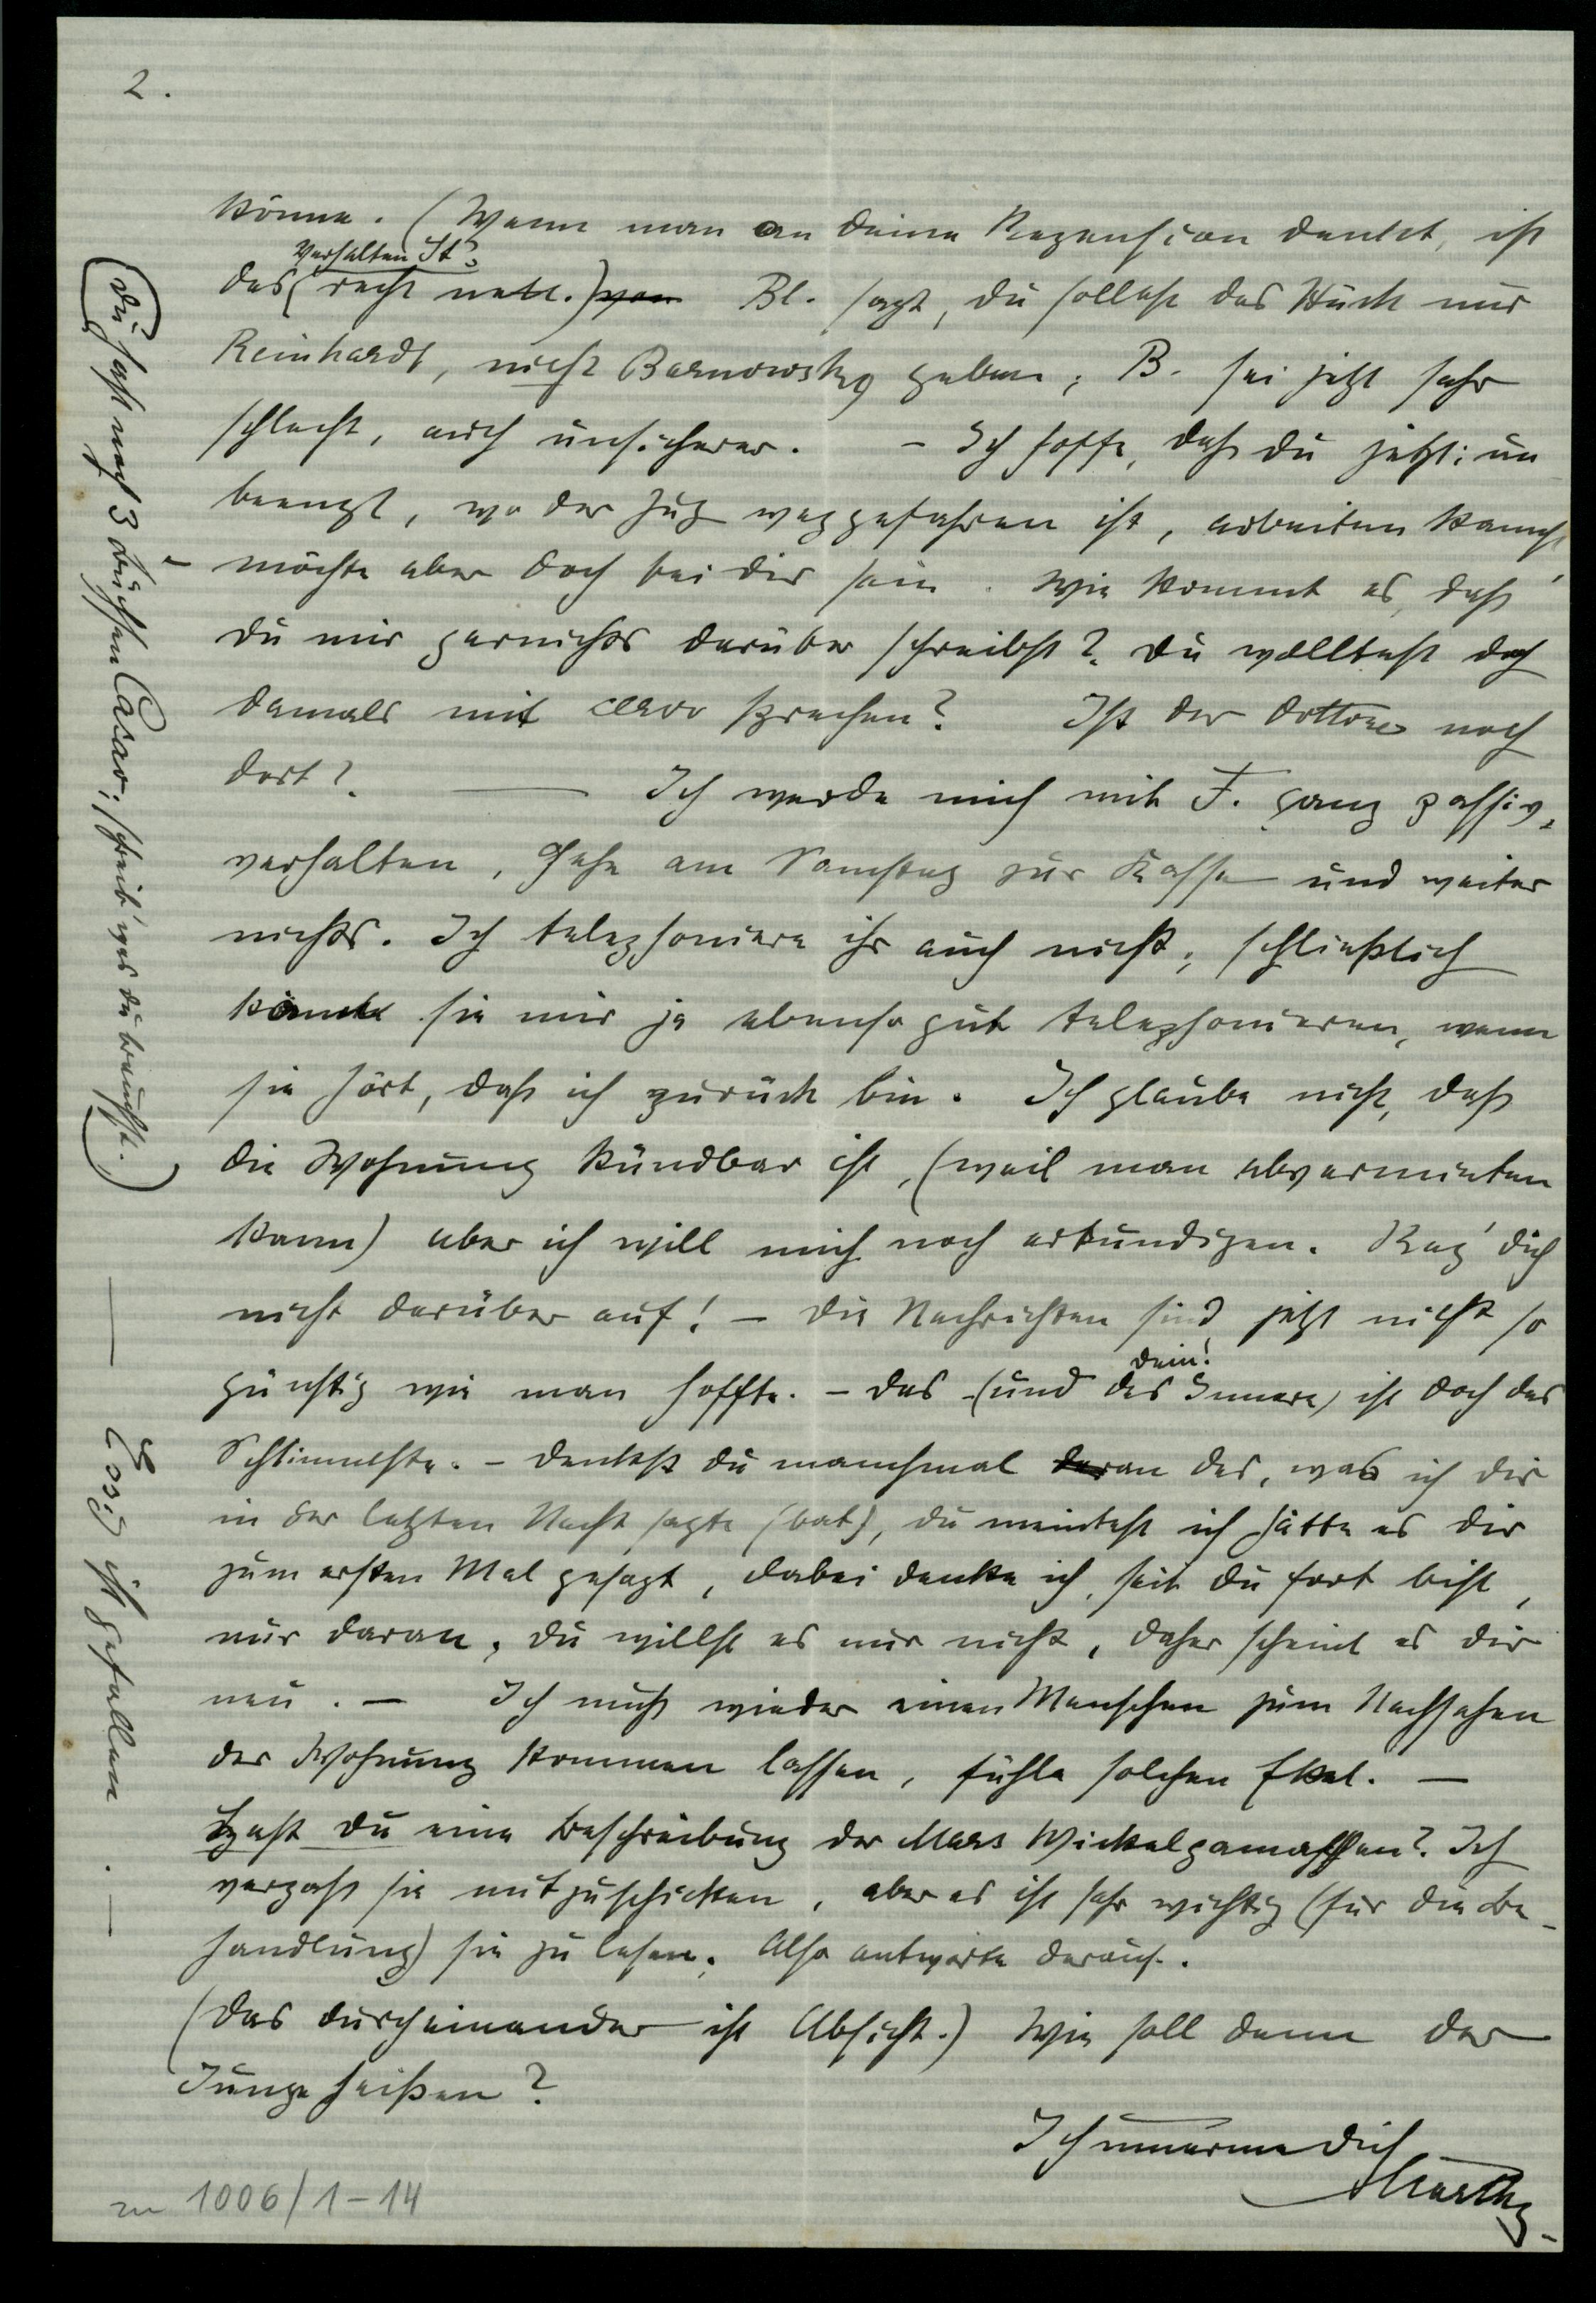 2.
könne. (Wenn man an deine Rezension denkt, ist
Verhalten St's
das recht nett.) von Bl. sagt, du sollest das Stück nur
Reinhardt, nicht Barnowsky geben; B. sei jetzt sehr
schlecht, auch unsicherer. – Ich hoffe, daß du jetzt un
beengt, wo der Zug weggefahren ist, arbeiten kannst,
– möchte aber doch bei dir sein. Wie kommt es, daß
du mir garnichts darüber schreibst? Du wolltest doch
damals mit sprechen? Ist der Dottore noch
dort? — Ich werde mich mit F. ganz passiv
verhalten, gehe am Samstag zur Kasse und weiter
nichts. Ich telephoniere ihr auch nicht, schließlich
könnte sie mir ja ebenso gut telephonieren, wenn
sie hört, daß ich zurück bin. Ich glaube nicht, daß
die Wohnung kündbar ist, (weil man abvermieten
kann) aber ich will mich noch erkundigen. Reg' dich
nicht darüber auf! – Die Nachrichten sind jetzt nicht so
günstig wie man hoffte. – Das (und das Innere) ist doch das
dein!
Schlimmste. – Denkst du manchmal daran das, was ich dir
in der letzten Nacht sagte (bat), du meintest ich hätte es dir
zum ersten Mal gesagt, dabei denke ich, seit du fort bist,
nur daran, du willst es nur nicht, daher scheint es dir
neu. – Ich muß wieder einen Menschen zum Nachsehen
der Wohnung kommen lassen, fühle solchen Ekel. —
Hast du eine Beschreibung der Mars Wickelgamaschen? Ich
vergaß sie mitzuschicken, aber es ist sehr wichtig (für die Be-
handlung) sie zu lesen. Also antworte darauf.
(Das Durcheinander ist Absicht.) Wie soll denn der
Junge heißen?
Ich umarme dich
Marthy.
(Du hast noch 3 Büchsen Casao; schreib' was du brauchst.)
— Essig ist gefallen. —
zu 1006/1-14